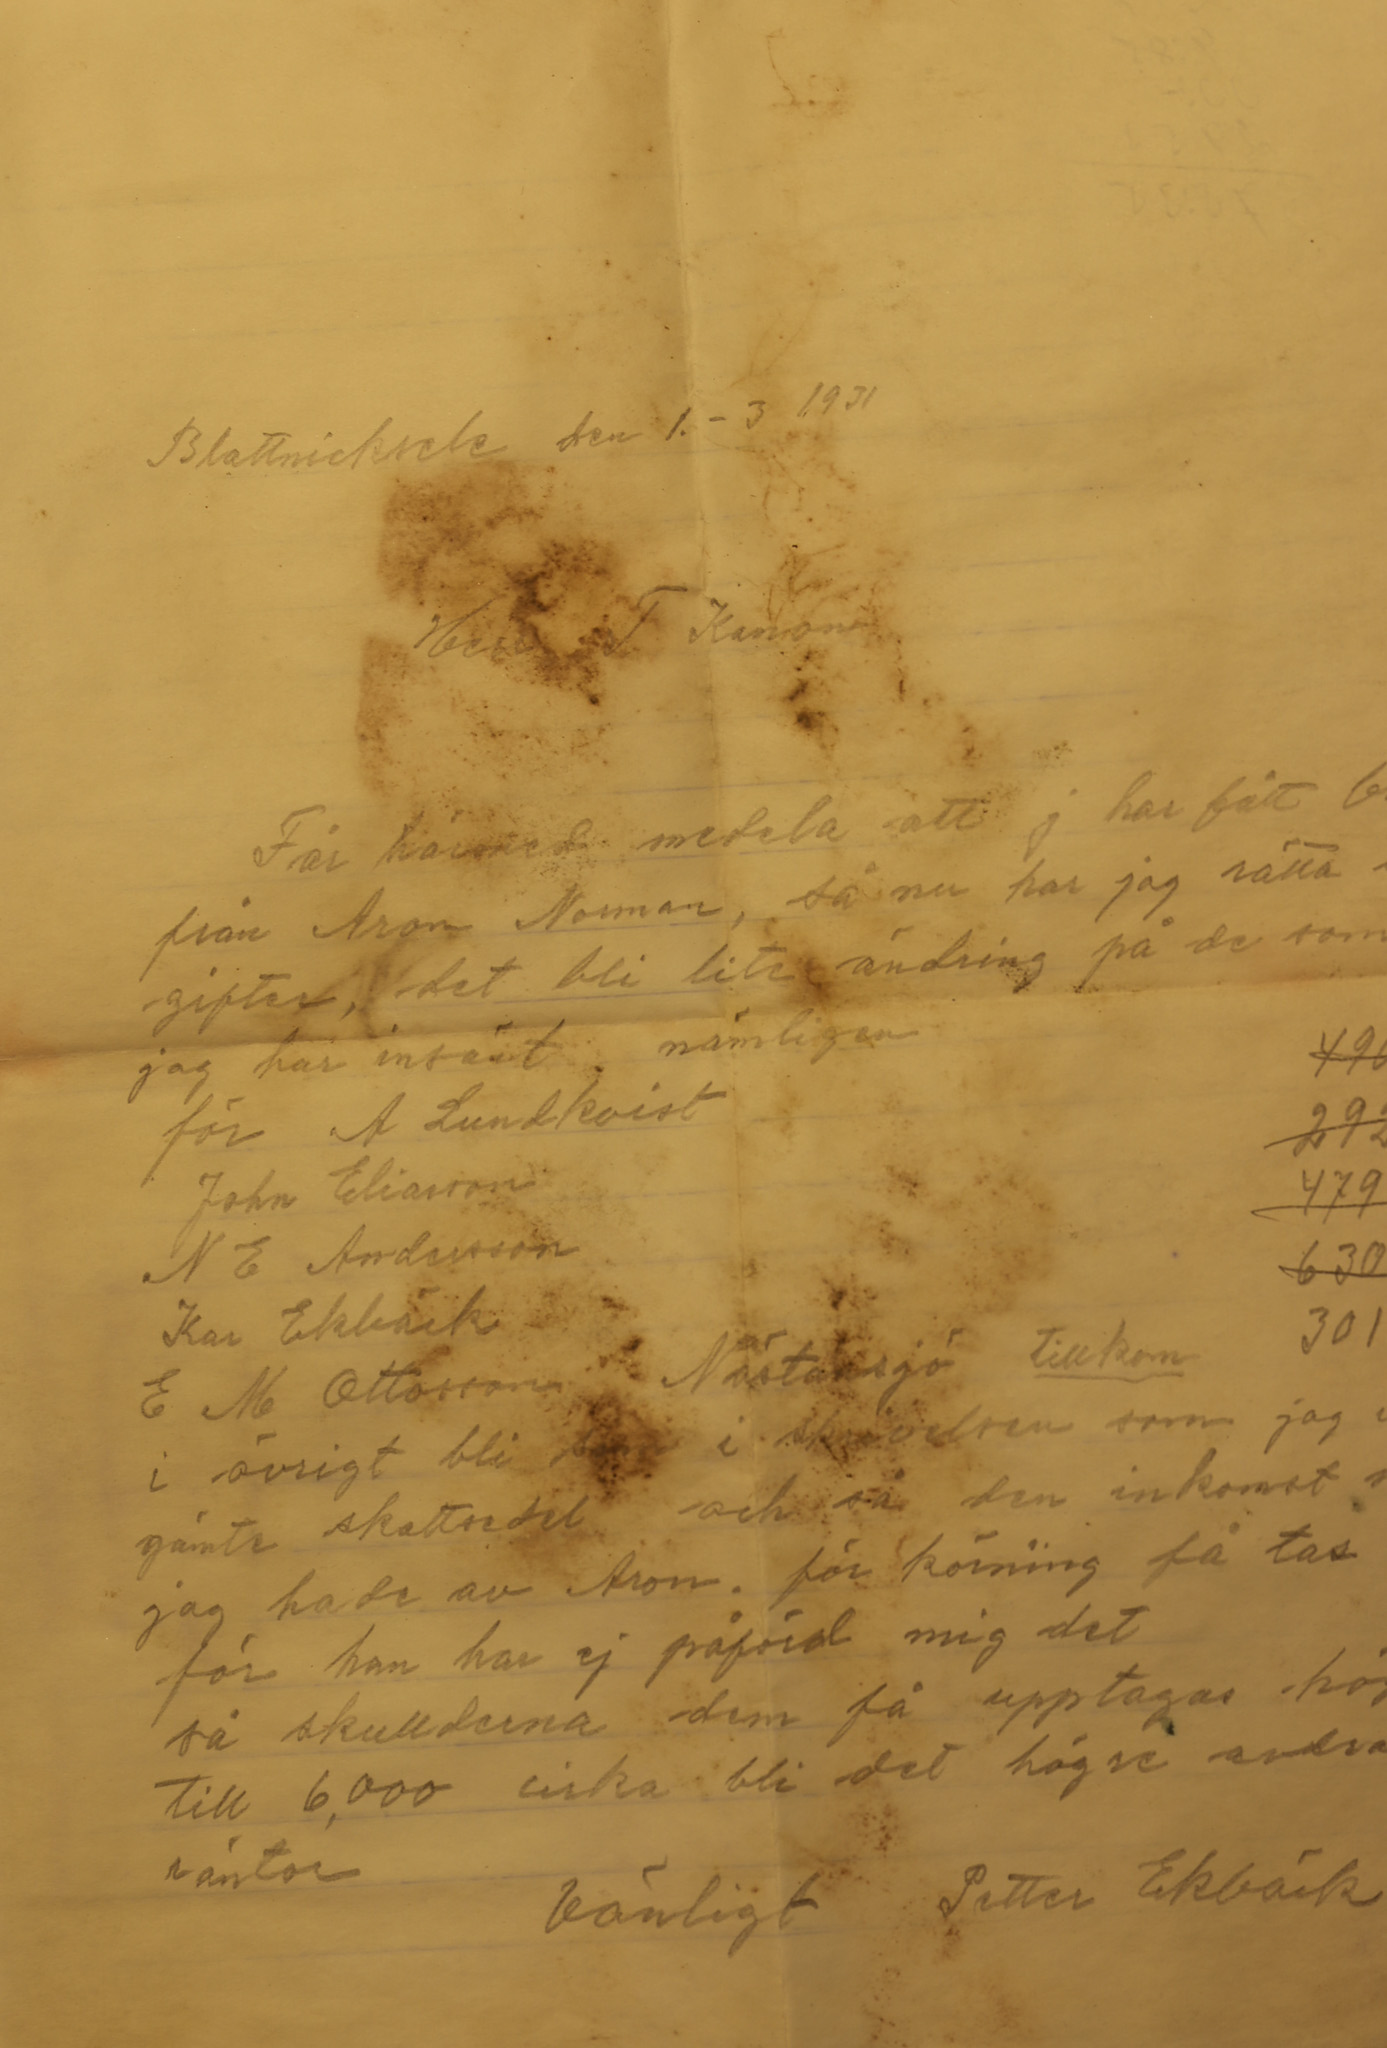 Blattnicksele den 1.-3 1931
Herr T Kanon
Får härmed medela att j har fått
från Aron Norman, så nu har jag rätta
gifter, det bli lite ändring på de som
jag har insänt nämligen
för A Lundkvist 490
John Eliasson 292
N E Andersson 479
Kar Ekbäck 630
E M Ottosson Nästansjö tillkom 301
i övrigt bli som i skrivelsen som jag
gämte skattsedel och så den inkomst
jag hade av Aron. för körning få tas
för han har ej påförd mig det
så skullderna dem få upptagas
till 6,000 cirka bli det högre
räntor
Vänligt Petter Ekbäck